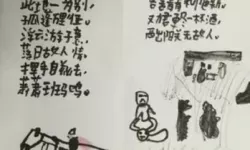 此地一为别,
孤蓬万里征。
浮云游子意,
落日故人情。
挥手自兹去,
萧萧班马鸣。
青青柳色新。
一杯酒,
西出阳关无故人。